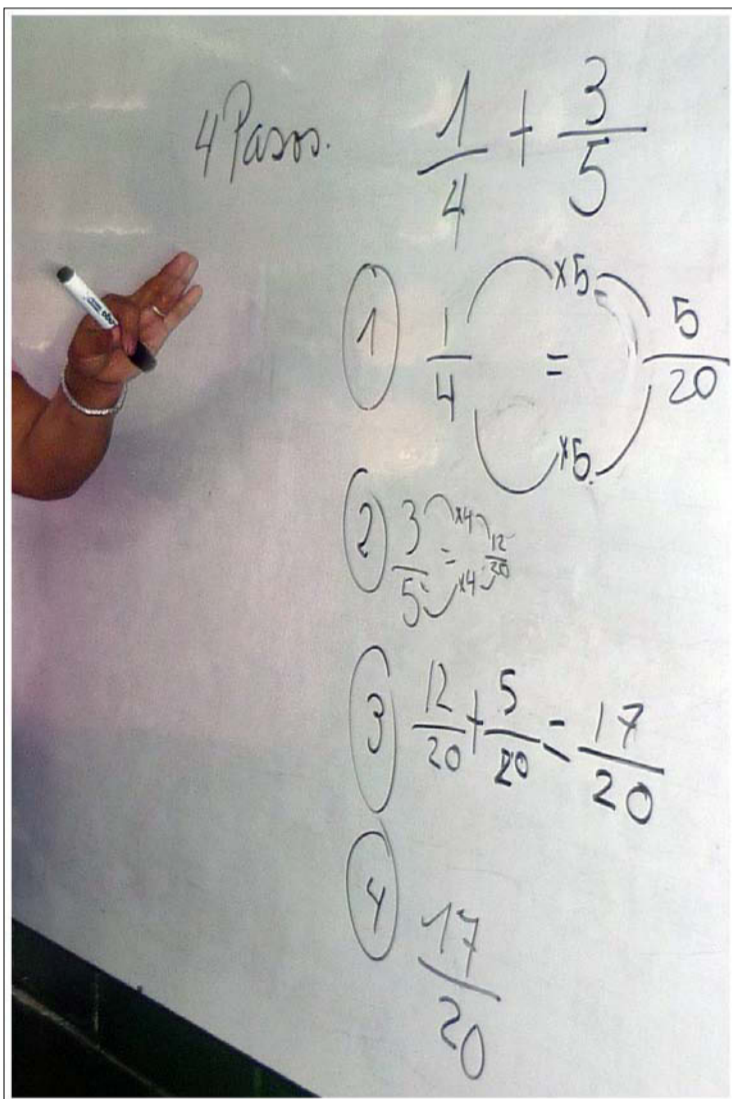 4 Pasos. 1/4 + 3/5
1 1/4 = 5/20 x5 x5
2 3/5 = 12/20 x4 x4
3 12/20 + 5/20 = 17/20
4 17/20